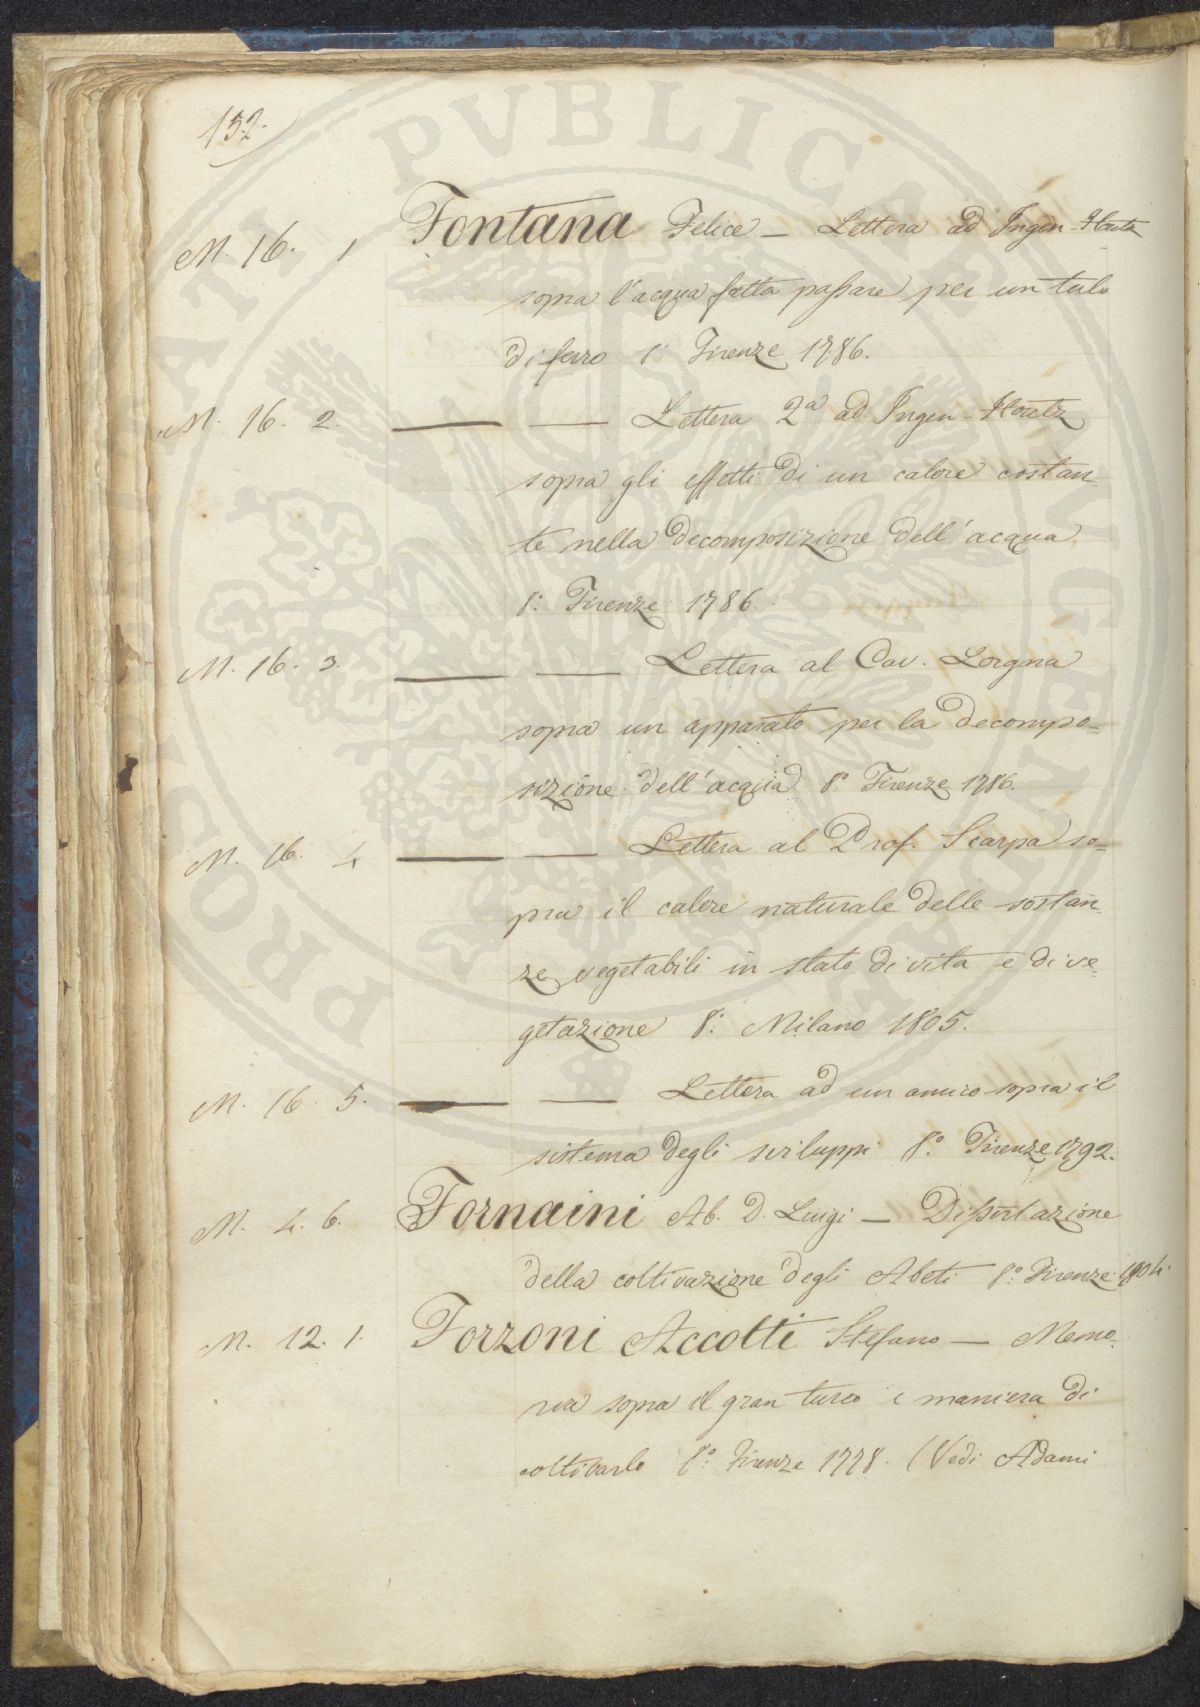 152.
M. 16. 1 Fontana Felice — Lettera ad Ingen-Houtz
sopra l'acqua fatta passare per un tubo
di ferro 8° Firenze 1786.
M. 16. 2. — — Lettera 2a ad Ingen-Houtz
sopra gli effetti di un calore costan-
te nella decomposizione dell'acqua
8° Firenze 1786.
M. 16. 3. — — Lettera al Cav. Lorgna
sopra un apparato per la decompo=
sizione dell'acqua 8° Firenze 1786.
M. 16. 4 — — Lettera al Prof. Scarpa so=
pra il calore naturale delle sostan-
ze vegetabili in stato di vita e di ve=
getazione 8° Milano 1805.
M. 16. 5. — — Lettera ad un amico sopra il
sistema degli sviluppi 8° Firenze 1792.
M. 4. 6. Fornaini Ab. D. Luigi — Dissertazione
della coltivazione degli Abeti 8° Firenze 1804.
M. 12. 1. Forzoni Accolti Stefano — Memo-
ria sopra il gran turco e maniera di
coltivarlo 8° Firenze 1778. (Vedi Adami
PROSPERITATI PVBLICAE AVGENDAE